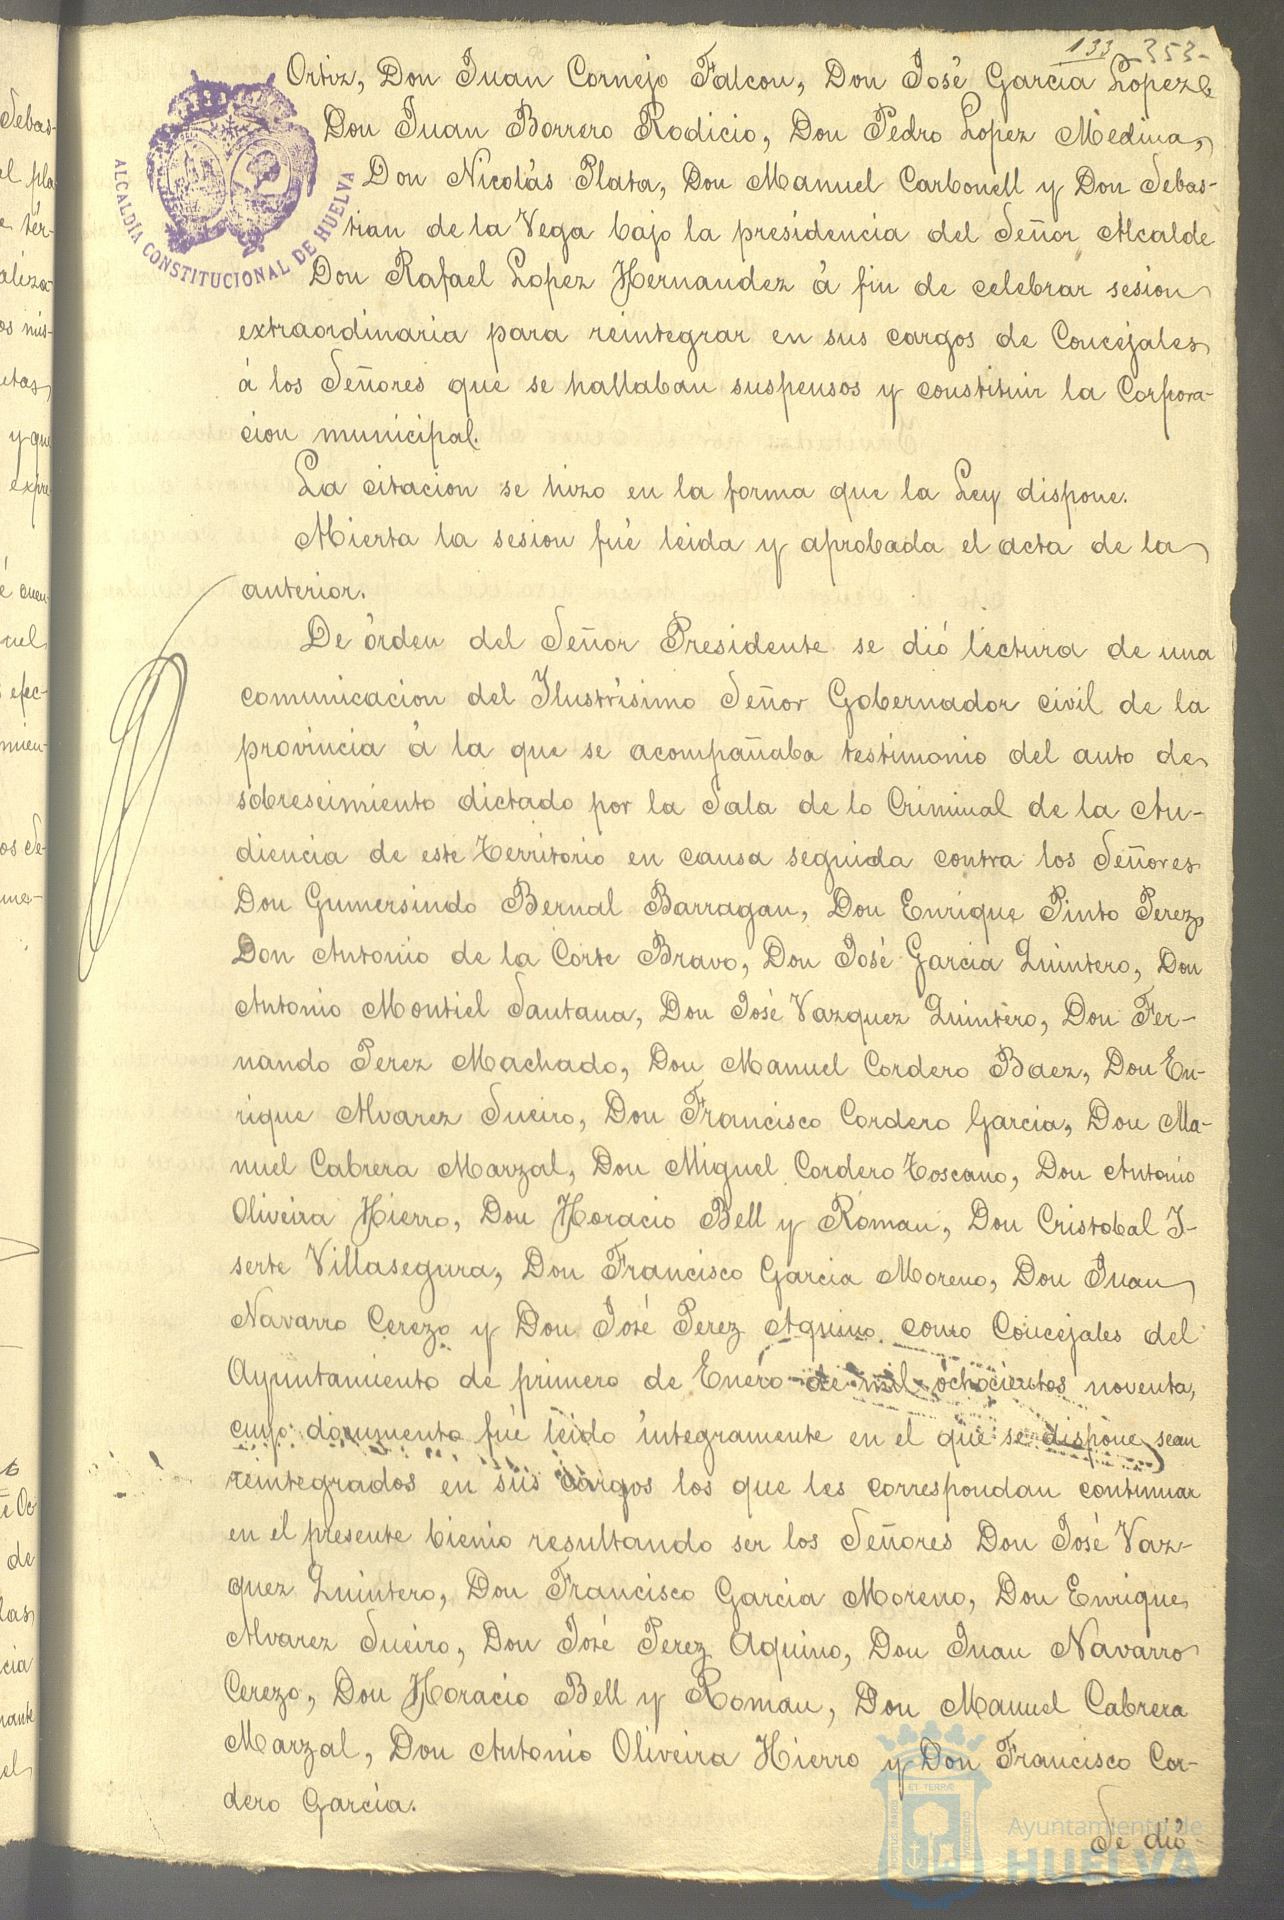 133 - 353-
Ortiz, Don Juan Cornejo Falcon, Don José Garcia Lopez
Don Juan Borrero Rodicio, Don Pedro Lopez Medina,
Don Nicolás Plata, Don Manuel Carbonell y Don Sebas-
tian de la Vega bajo la presidencia del Señor Alcalde
Don Rafael Lopez Hernandez á fin de celebrar sesion
extraordinaria para reintegrar en sus cargos de Concejales
á los Señores que se hallaban suspensos y constituir la Corpora-
cion municipal.
La citacion se hizo en la forma que la Ley dispone.
Abierta la sesion fué leida y aprobada el acta de la
anterior.
De órden del Señor Presidente se dió lectura de una
comunicacion del Ilustrísimo Señor Gobernador civil de la
provincia á la que se acompañaba testimonio del auto de
sobreseimiento dictado por la Sala de lo Criminal de la Au-
diencia de este Territorio en causa seguida contra los Señores
Don Gumersindo Bernal Barragan, Don Enrique Pinto Perez,
Don Antonio de la Corte Bravo, Don José Garcia Quintero, Don
Antonio Montiel Santana, Don José Vazquez Quintero, Don Fer-
nando Perez Machado, Don Manuel Cordero Baez, Don En-
rique Alvarez Sueiro, Don Francisco Cordero Garcia, Don Ma-
nuel Cabrera Marzal, Don Miguel Cordero Toscano, Don Antonio
Oliveira Hierro, Don Horacio Bell y Román, Don Cristobal I-
serte Villasegura, Don Francisco Garcia Moreno, Don Juan
Navarro Cerezo y Don José Perez Aquino, como Concejales del
Ayuntamiento de primero de Enero de mil ochocientos noventa,
cuyo documento fué leido integramente en el que se dispone sean
reintegrados en sus cargos los que les correspondan continuar
en el presente bienio resultando ser los Señores Don José Vaz-
quez Quintero, Don Francisco Garcia Moreno, Don Enrique
Alvarez Sueiro, Don José Perez Aquino, Don Juan Navarro
Cerezo, Don Horacio Bell y Roman, Don Manuel Cabrera
Marzal, Don Antonio Oliveira Hierro y Don Francisco Cor-
dero Garcia.
Se dió
ALCALDÍA CONSTITUCIONAL DE HUELVA
Ayuntamiento de
HUELVA